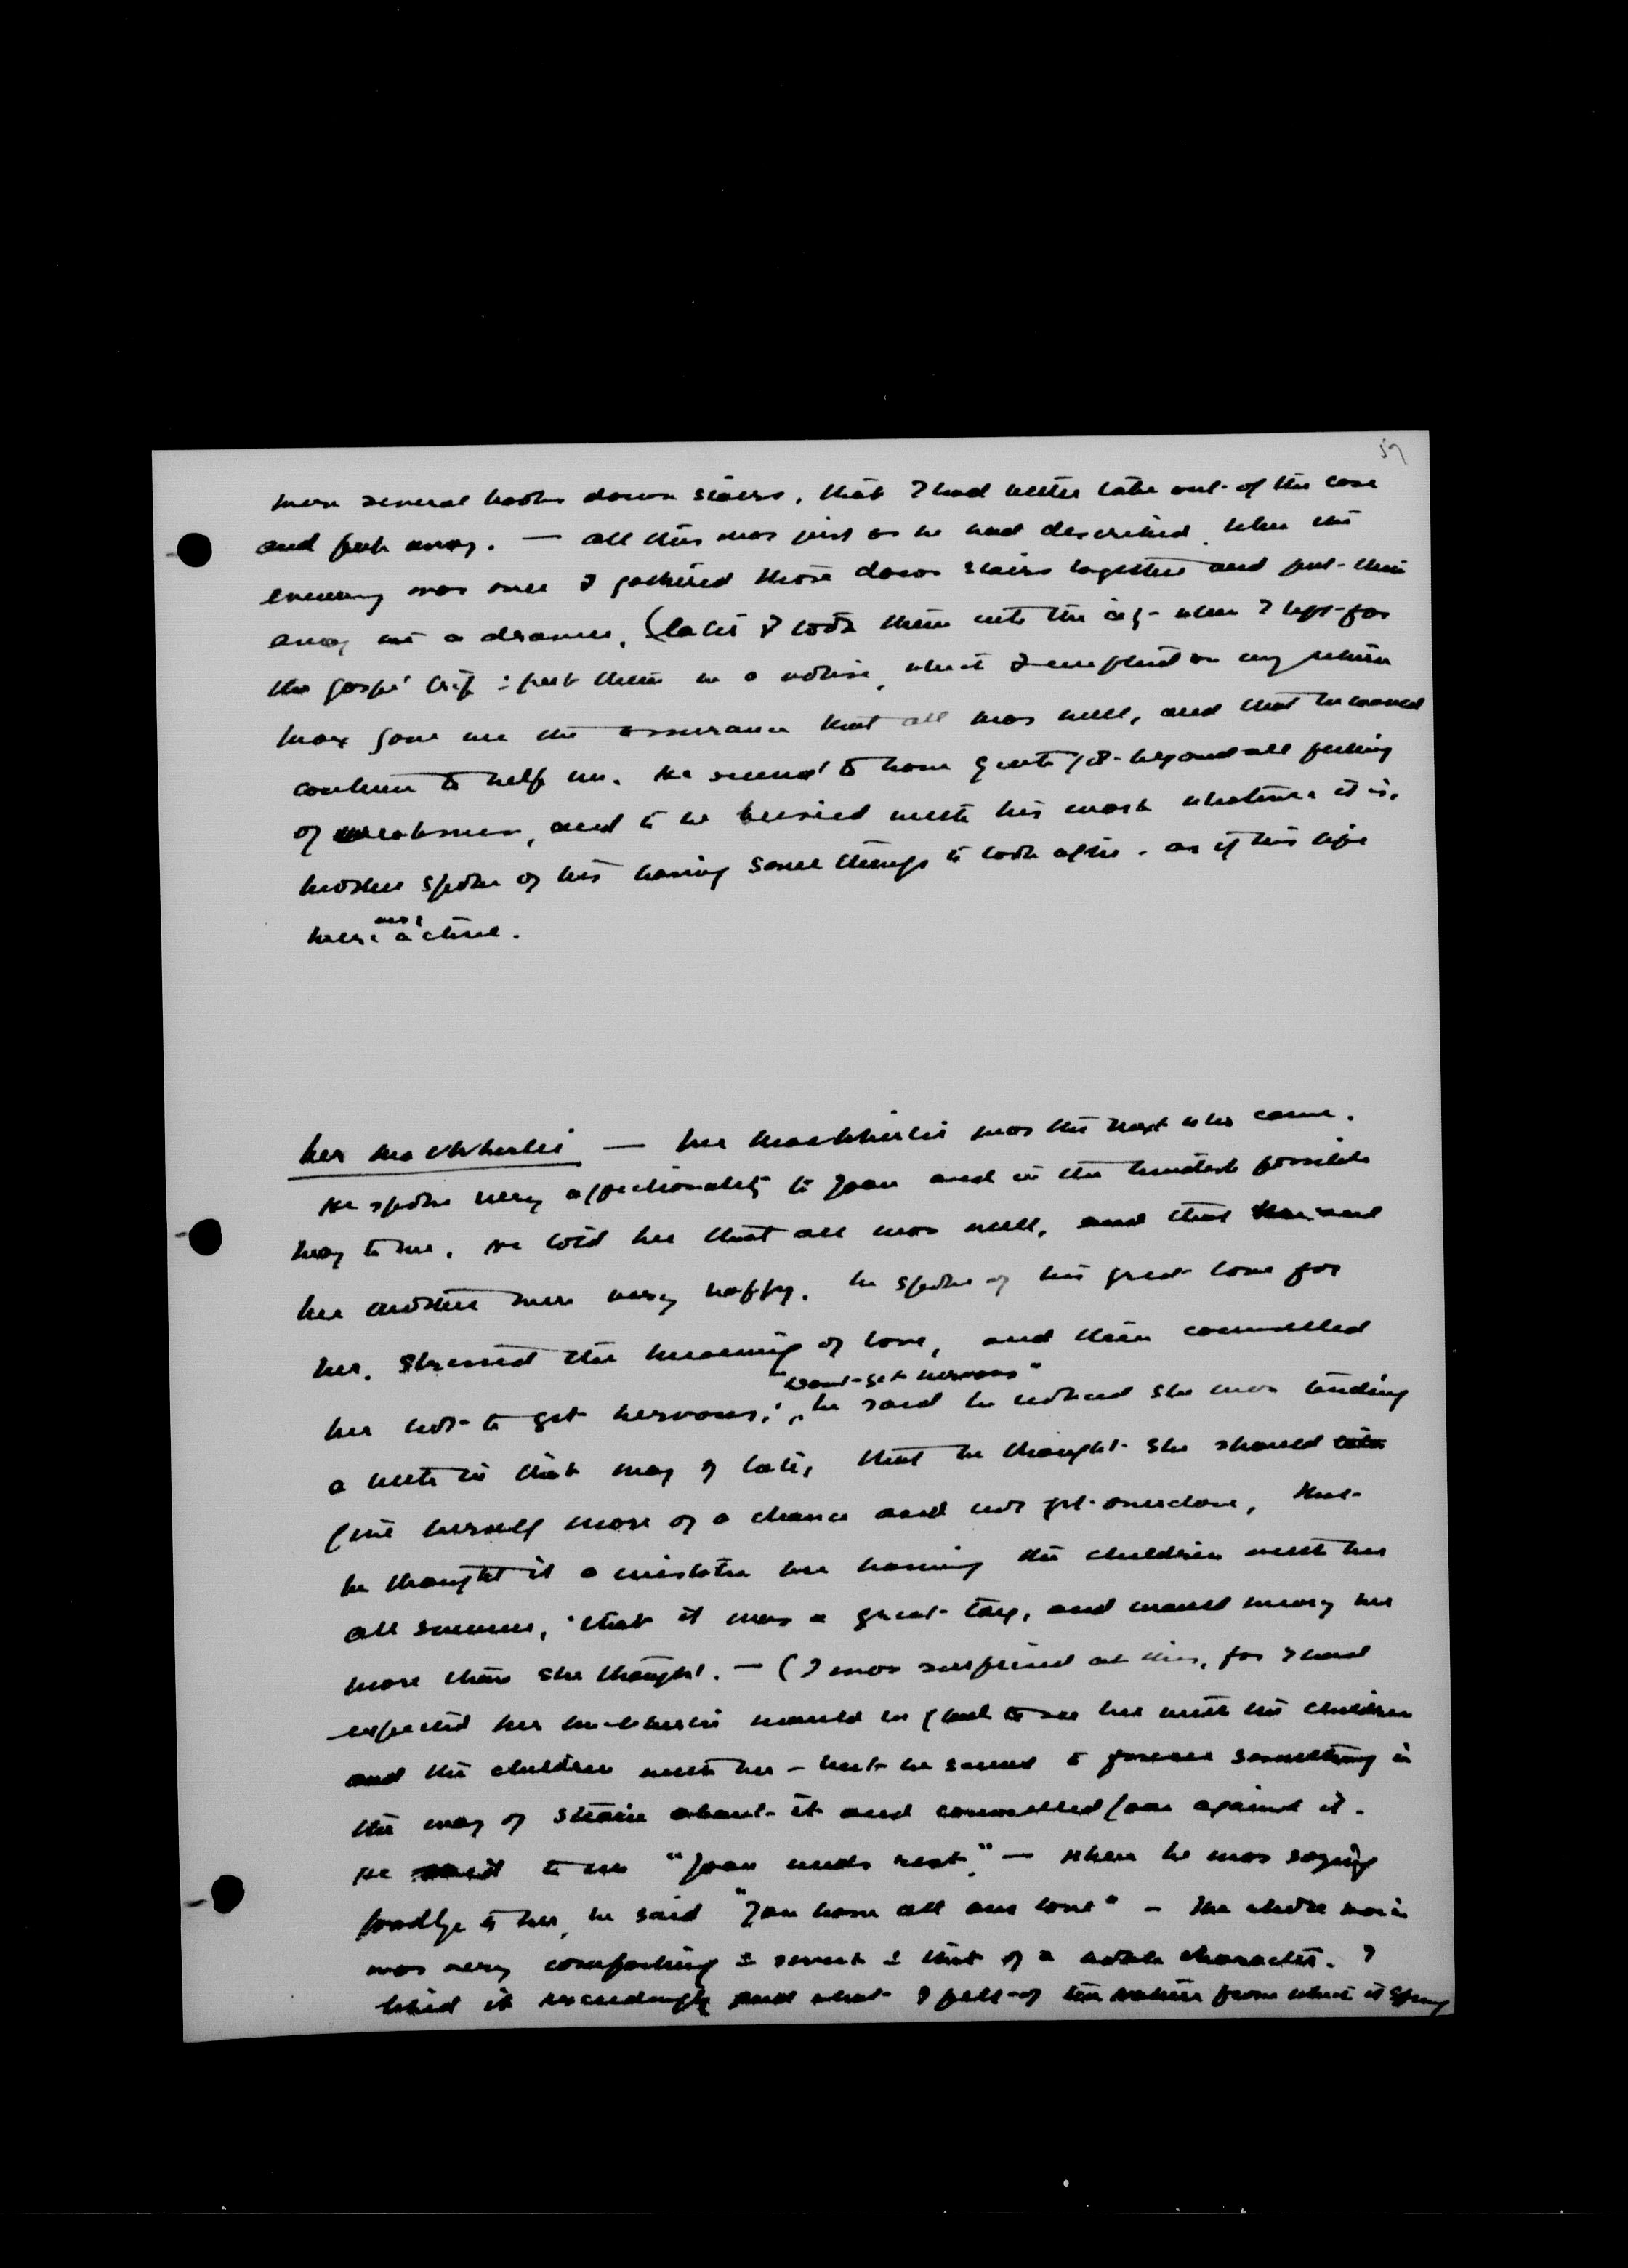 57
were several books down stairs, that I had better take out of the case
and put away. — all this was just as he had described. When the
evening was over I gathered those down stairs together and put them
away in a drawer. (Later I took them into the city - when I left for
the Gaspé trip & put them in a valise, which I emptied on my return
Max gave me the assurance that all was well, and that he would
continue to help me. He seemed to have quite got beyond all feeling
of weakness, and to be busied with his work whatever it is.
Mother spoke of his having some things to look after - as if his life
here was active.
Mr MacWhirter — Mr MacWhirter was the next who came.
He spoke very affectionately to Joan and in the kindest possible
way to me. He told her that all was well, and that he and
her mother were very happy. He spoke of his great love for
her. Stressed the meaning of love, and then counselled
"Don't get nervous"
her not to get nervous, he said he noticed she was tending
a little in that way of late, that he thought she should take
give herself more of a chance and not get overdone, that
he thought it a mistake her having the children with her
all summer, that it was a great tax, and would weary her
more than she thought. — (I was surprised at this, for I had
expected Mr MacWhirter would be glad to see her with the children
and the children with her - but he seemed to foresee something in
the way of strain about it and counselled Joan against it.
He said to me "Joan needs rest" — When he was saying
goodbye to her, he said "You have all our love" - The whole voice
was very comforting & sweet & that of a noble character. I
liked it exceedingly and what I felt of the nature from which it sprung